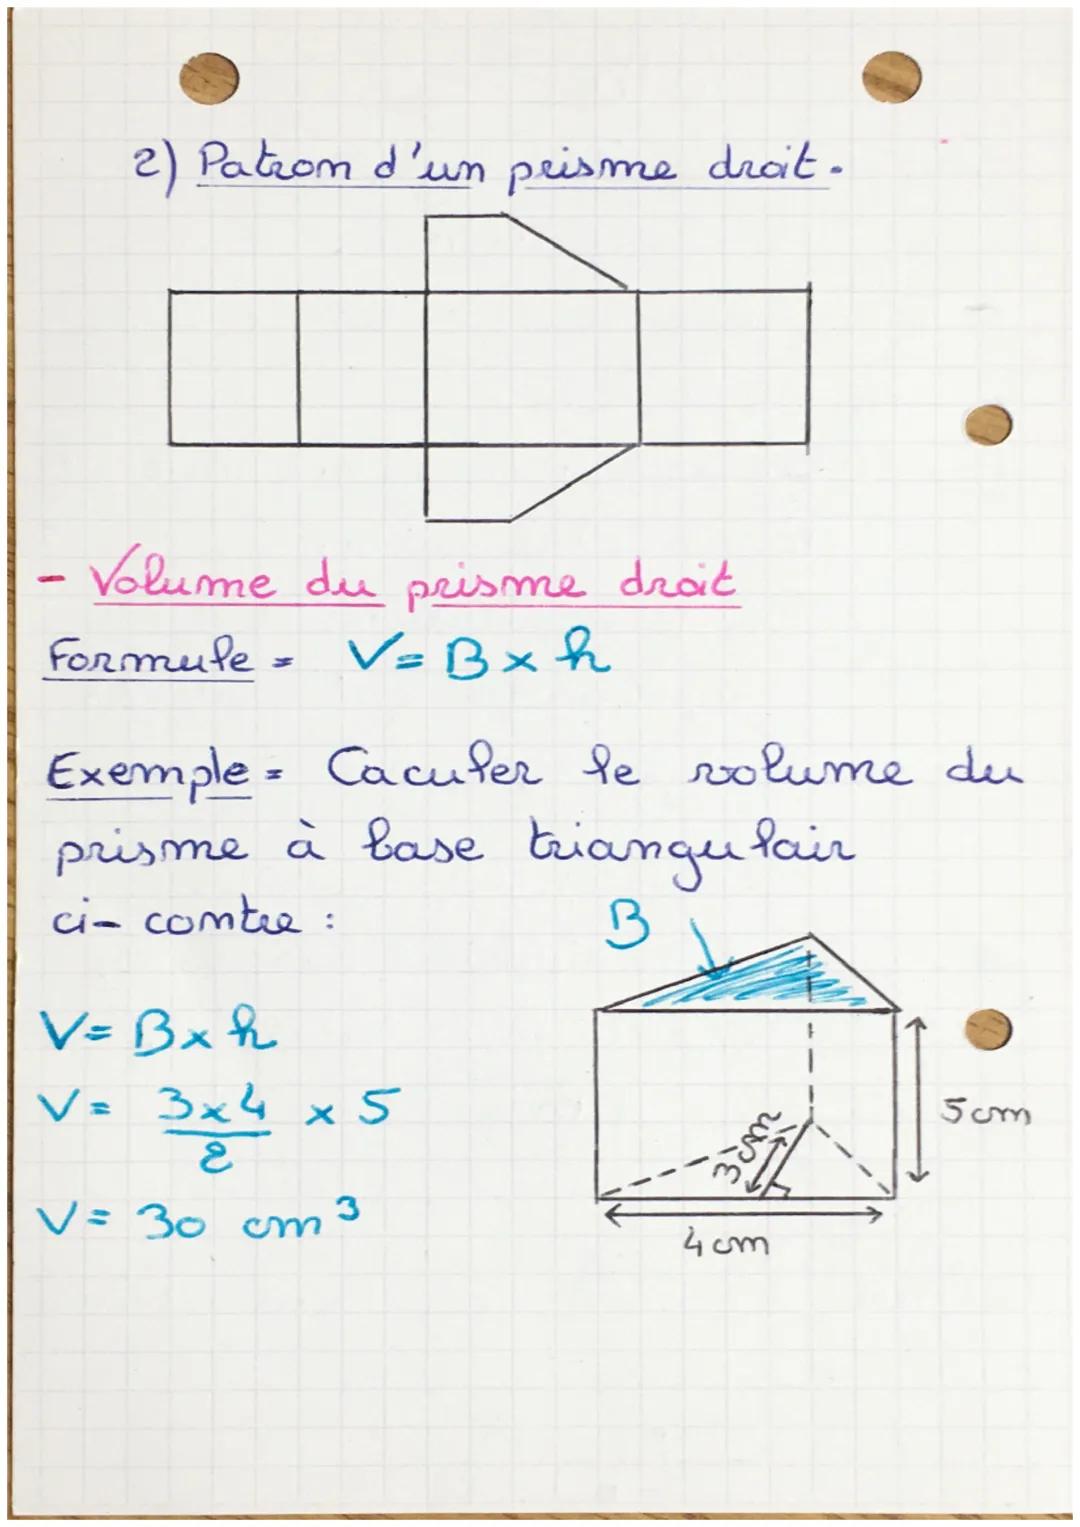 2) Patron d'un prisme droit.
- Volume du prisme droit
Formule = V = B x h
Exemple = Caculer le volume du
prisme à base triangulair
ci-contre :
B
V = B x h
V = 3x4/2 x 5
5 cm
3 cm
V = 30 cm³
4 cm